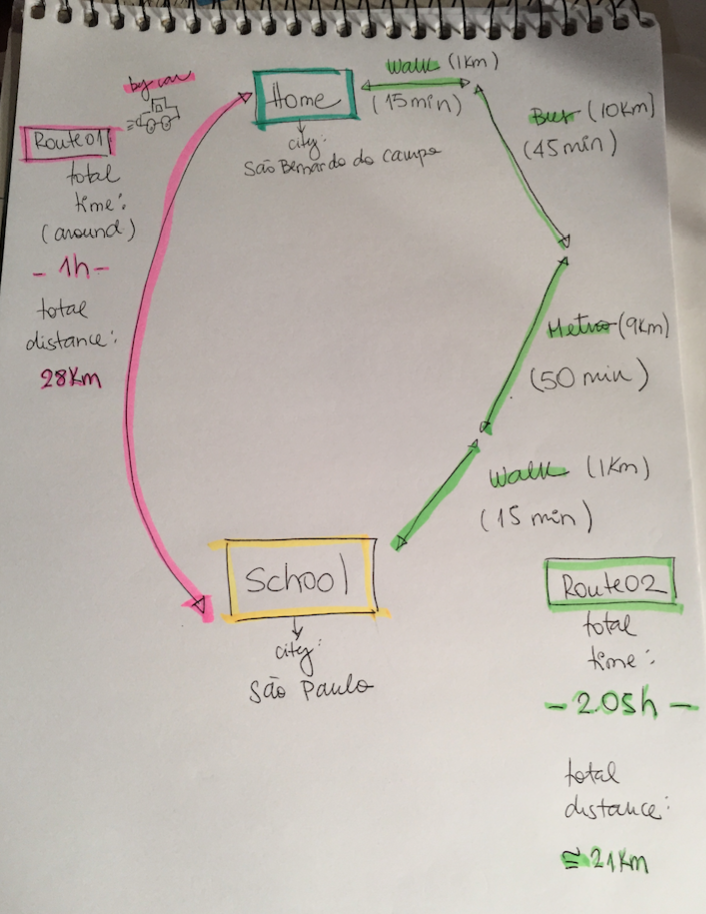 by car
Route01
total
time:
(around)
- 1h -
total
distance:
28Km
Home
city:
São Bernardo do Campo
Walk (1Km)
(15min)
Bus (10Km)
(45min)
Metro (9Km)
(50 min)
Walk (1Km)
(15 min)
School
city:
São Paulo
Route02
total
time:
- 2.05h -
total
distance:
≅ 21Km